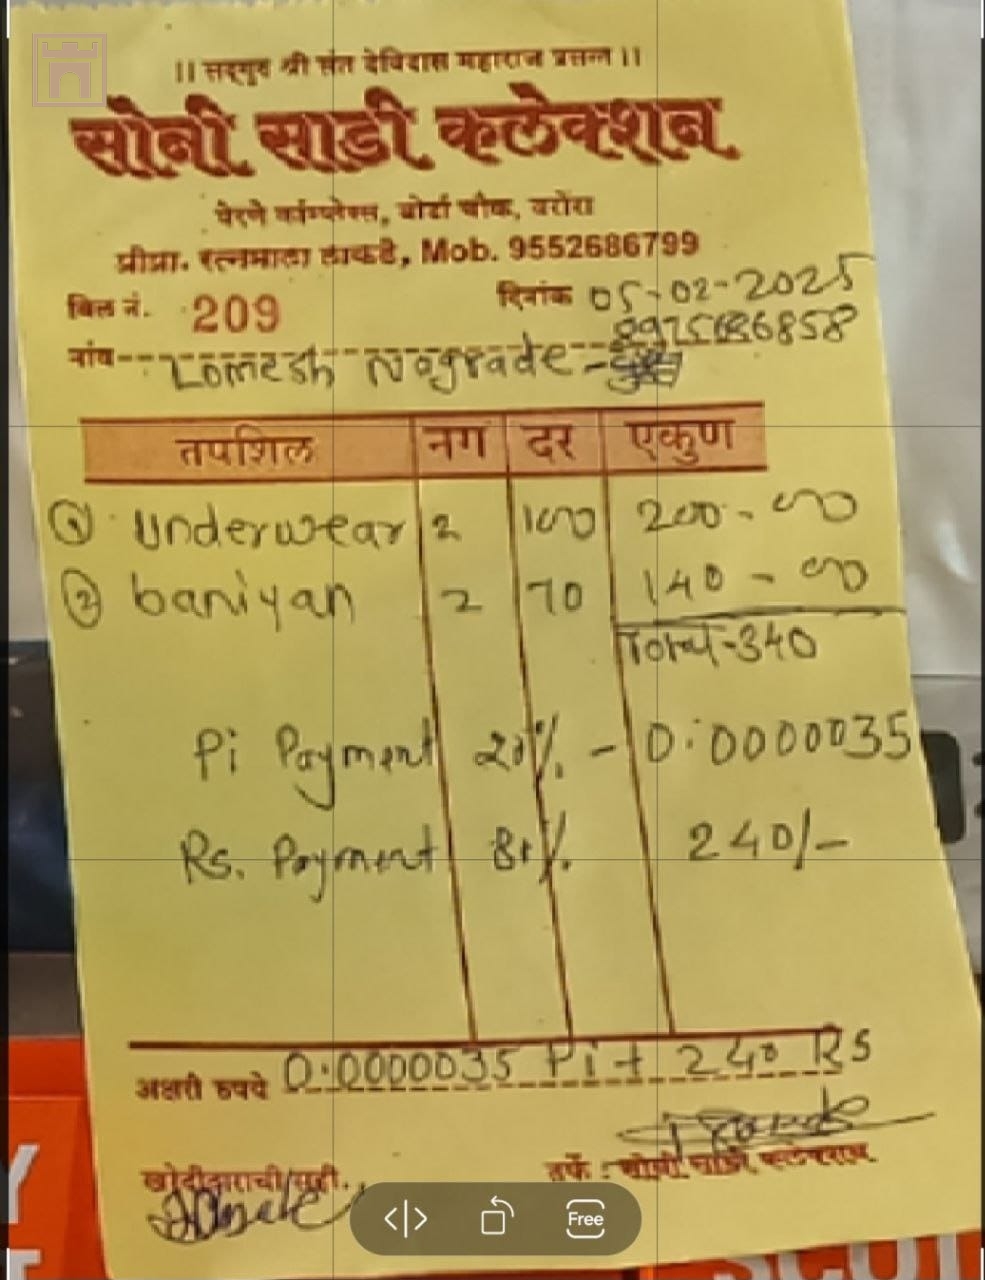 ।। सद्गुरु श्री संत देविदास महाराज प्रसन्न ।।
सोनी साडी कलेक्शन
पेरणे कॉम्प्लेक्स, बोर्डा चौक, वरोरा
प्रोप्रा. रत्नमाला ठाकडे, Mob. 9552686799
बिल नं. 209 दिनांक 05-02-2025
नांव Lomesh Nograde -
तपशिल नग दर एकुण
① Underwear 2 100 200-00
② baniyan 2 70 140-00
Total-340
Pi Payment 20% - 0.0000035
Rs. Payment 80% 240/-
अक्षरी रुपये 0.0000035 Pi + 240 Rs
तर्फे : सोनी साडी कलेक्शन
Free